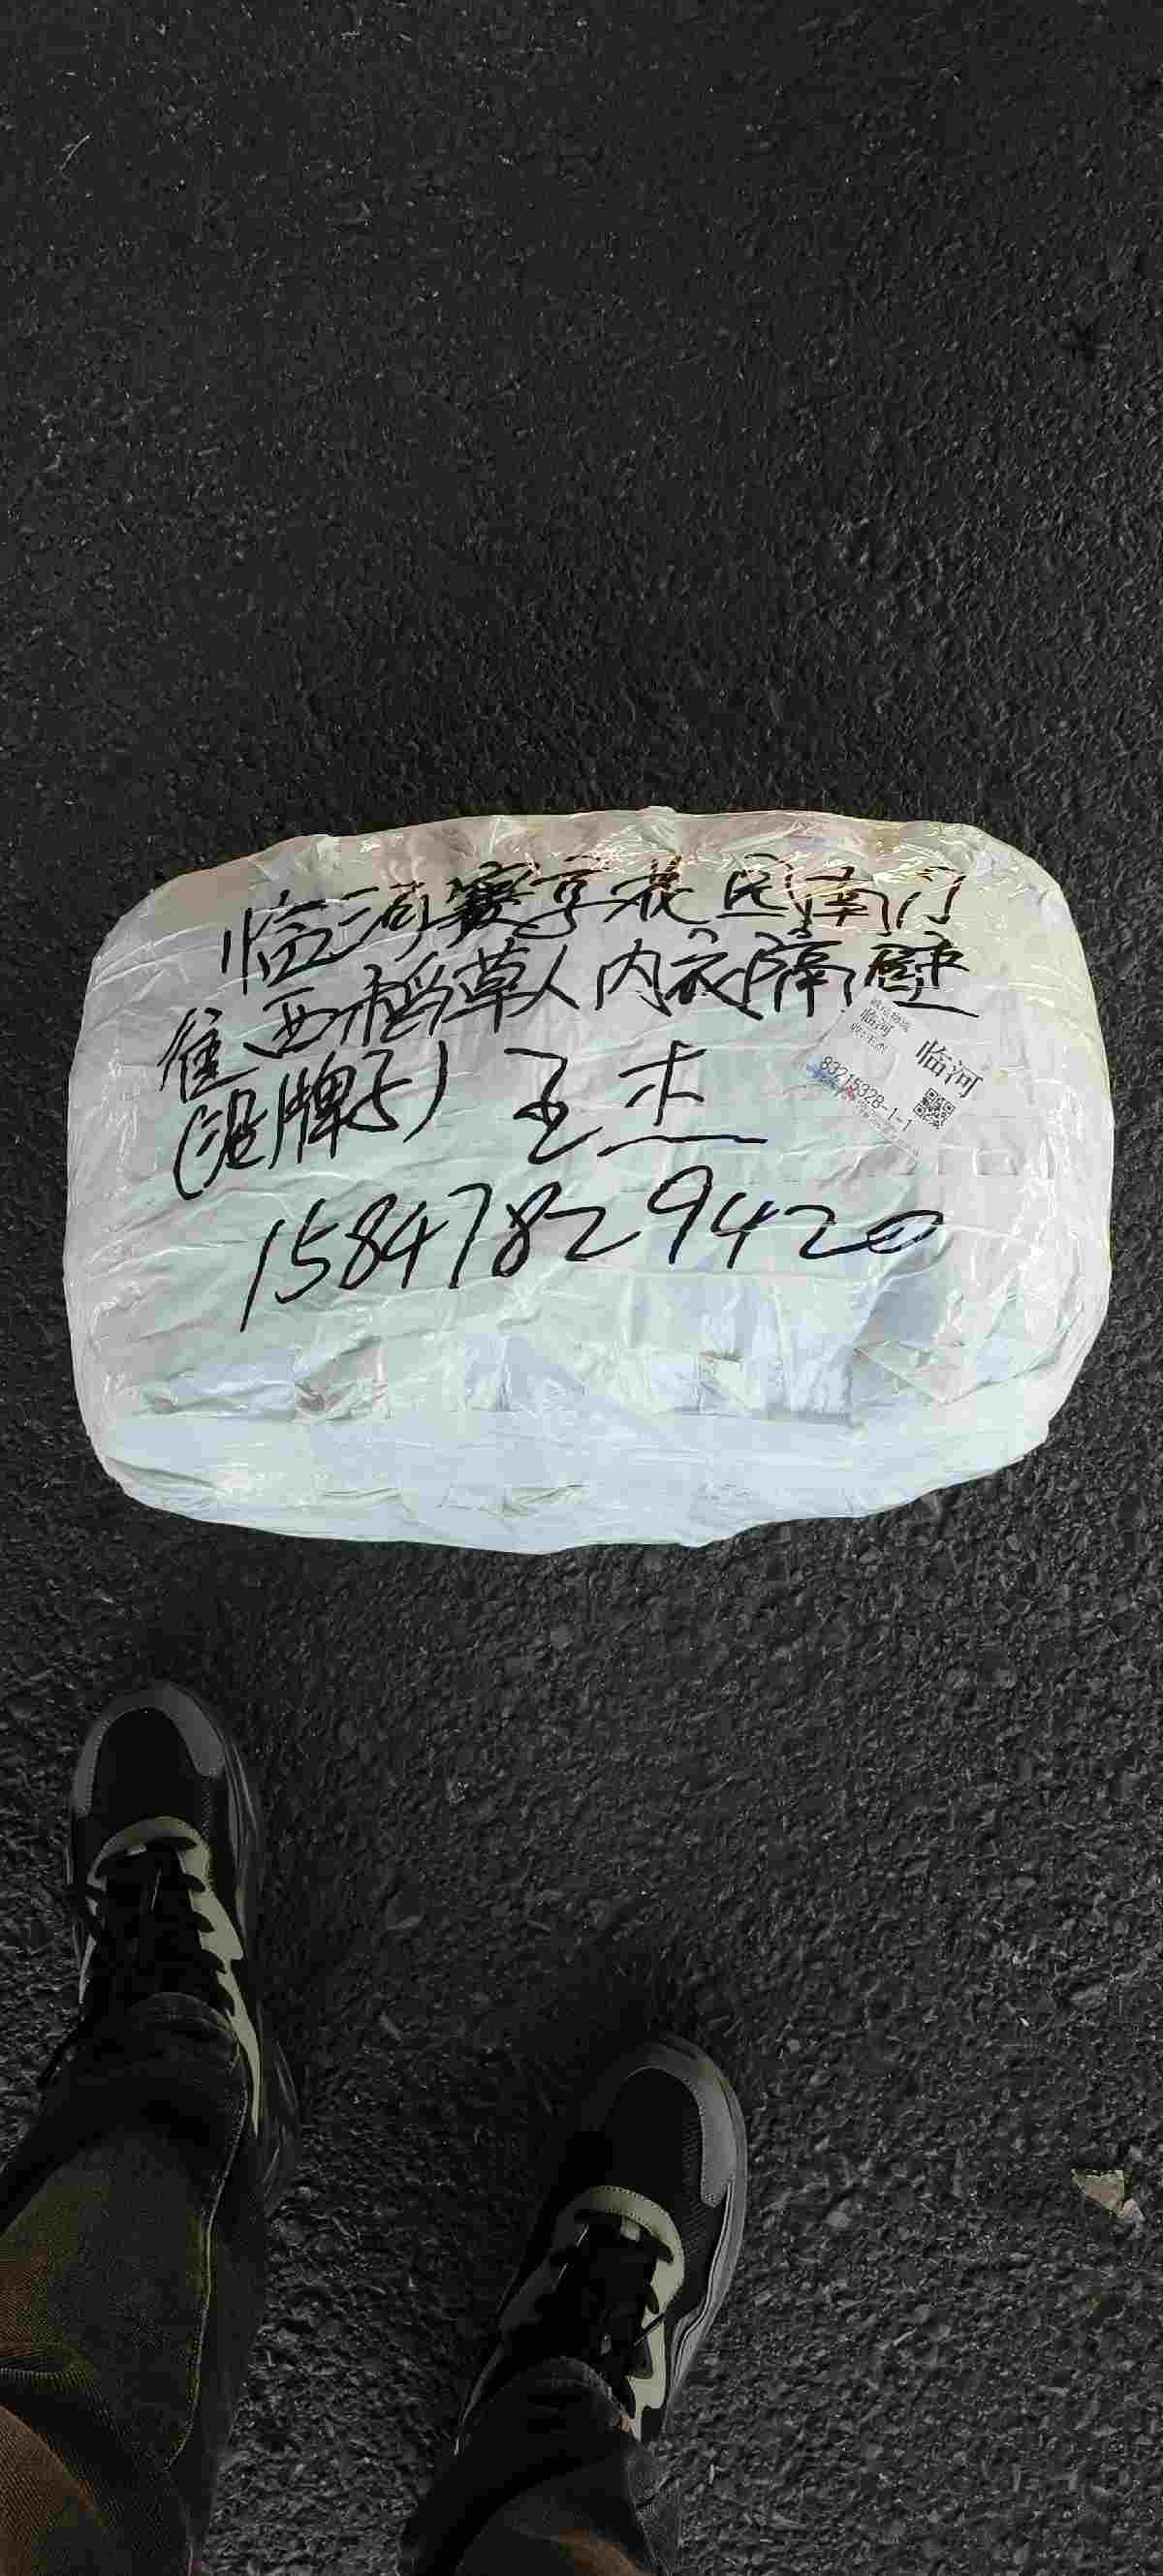 临河赛享花园南门
往西稻草人内衣隔壁
(没牌子) 王杰
15847829420
临河
收:王杰
临河
83215328-1-1